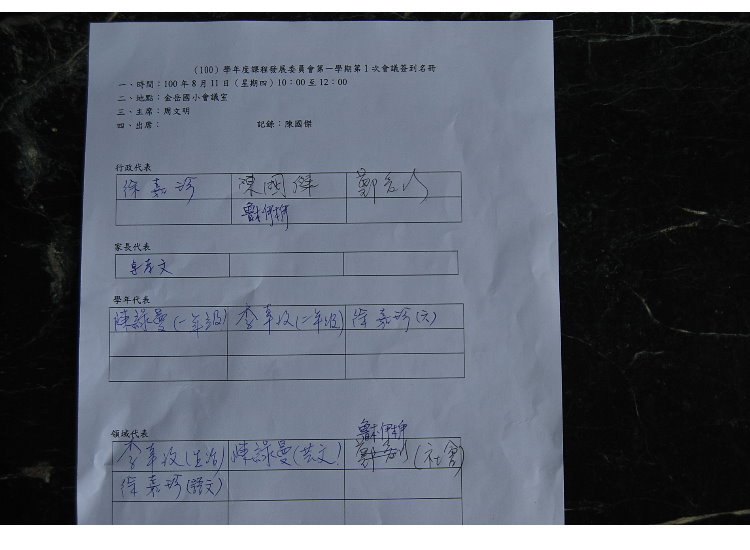 （100）學年度課程發展委員會第一學期第1次會議簽到名冊
一、時間：100年8月11日（星期四）10：00至12：00
二、地點：金岳國小會議室
三、主席：周文明
四、出席： 記錄：陳國傑
行政代表
徐嘉珍 陳國傑
家長代表
學年代表
陳詠曼(一年級) 李華玫(二年級) 徐嘉珍(六)
領域代表
李華玫(生活) 陳詠曼(藝文) (社會)
徐嘉珍(語文)